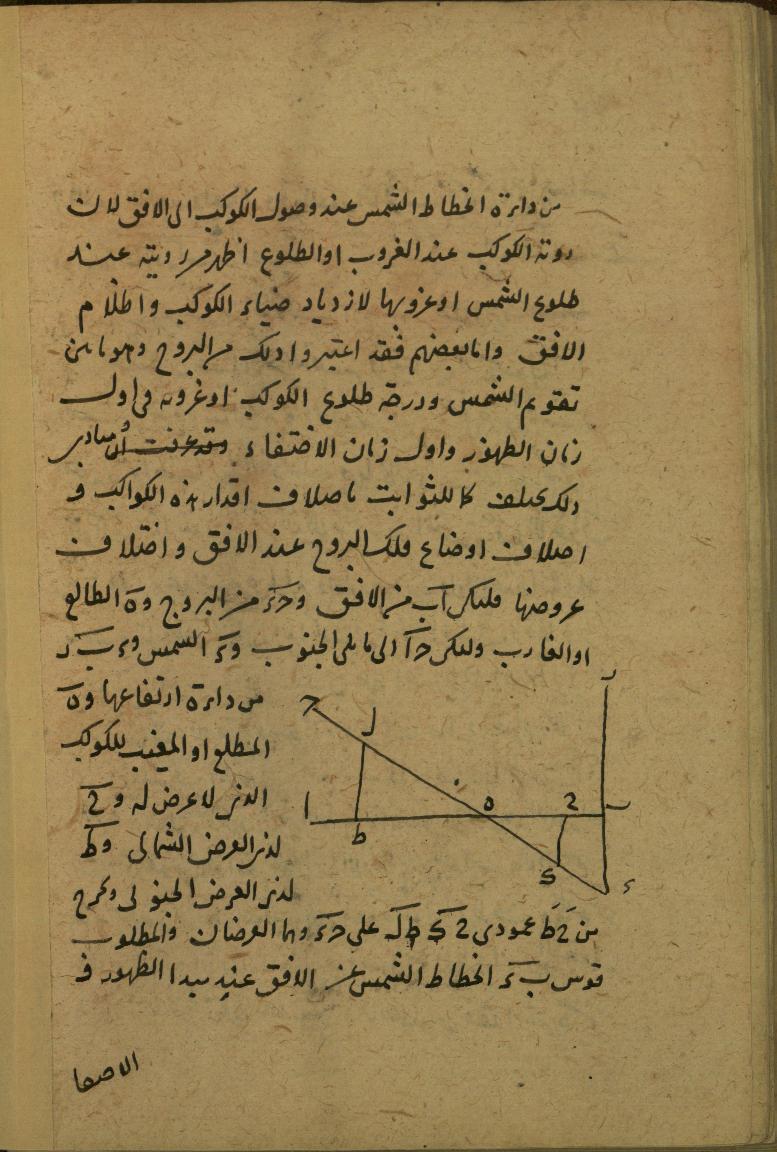 من دائرة انحطاط الشمس عند وصول الكوكب الى الافق لان
روية الكوكب عند الغروب او الطلوع اظهر من رويته عند
طلوع الشمس او غروبها لازدياد ضياء الكوكب واظلام
الافق واما بعضهم فقد اعتبروا ذلك من البروج وهو ما بين
تقويم الشمس ودرجة طلوع الكوكب او غروبه فى اول
زمان الظهور واول زمان الاختفاء وقد عرفت أن مبادى
ذلك يختلف كما للثوابت باختلاف اقدار هذه الكواكب و
اختلاف اوضاع فلك البروج عند الافق واختلاف
عروضها فليكن اب من الافق و حء من البروج و ه الطالع
او الغارب وليكن ح ا الى ما يلى الجنوب و ء الشمس و ء ب ر
من دائرة ارتفاعها و ه
المطلع او المغيب للكوكب
الذى لا عرض له و ح
لذى العرض الشمالى و ط
لذى العرض الجنوبى ونخرج
من ح ط عمودى ح ك ط ل على حء وهما العرضان والمطلوب
قوس ب ء انحطاط الشمس عن الافق عند مبدا الظهور و
الاختفا
ر
ح
ل
ا
ط
ه
ح
ب
ك
ء